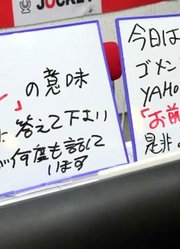 JOCKEY
」の意味
答えて下さい
何度も話して
います
今日は
ゴメン
YAHO
「お前
是非